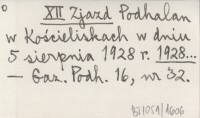 XII Zjazd Podhalan
w Kościeliskach w dniu
5 sierpnia 1928 r. 1928...
— Gaz. Podh. 16, nr 32.
BJ/OSA/1606